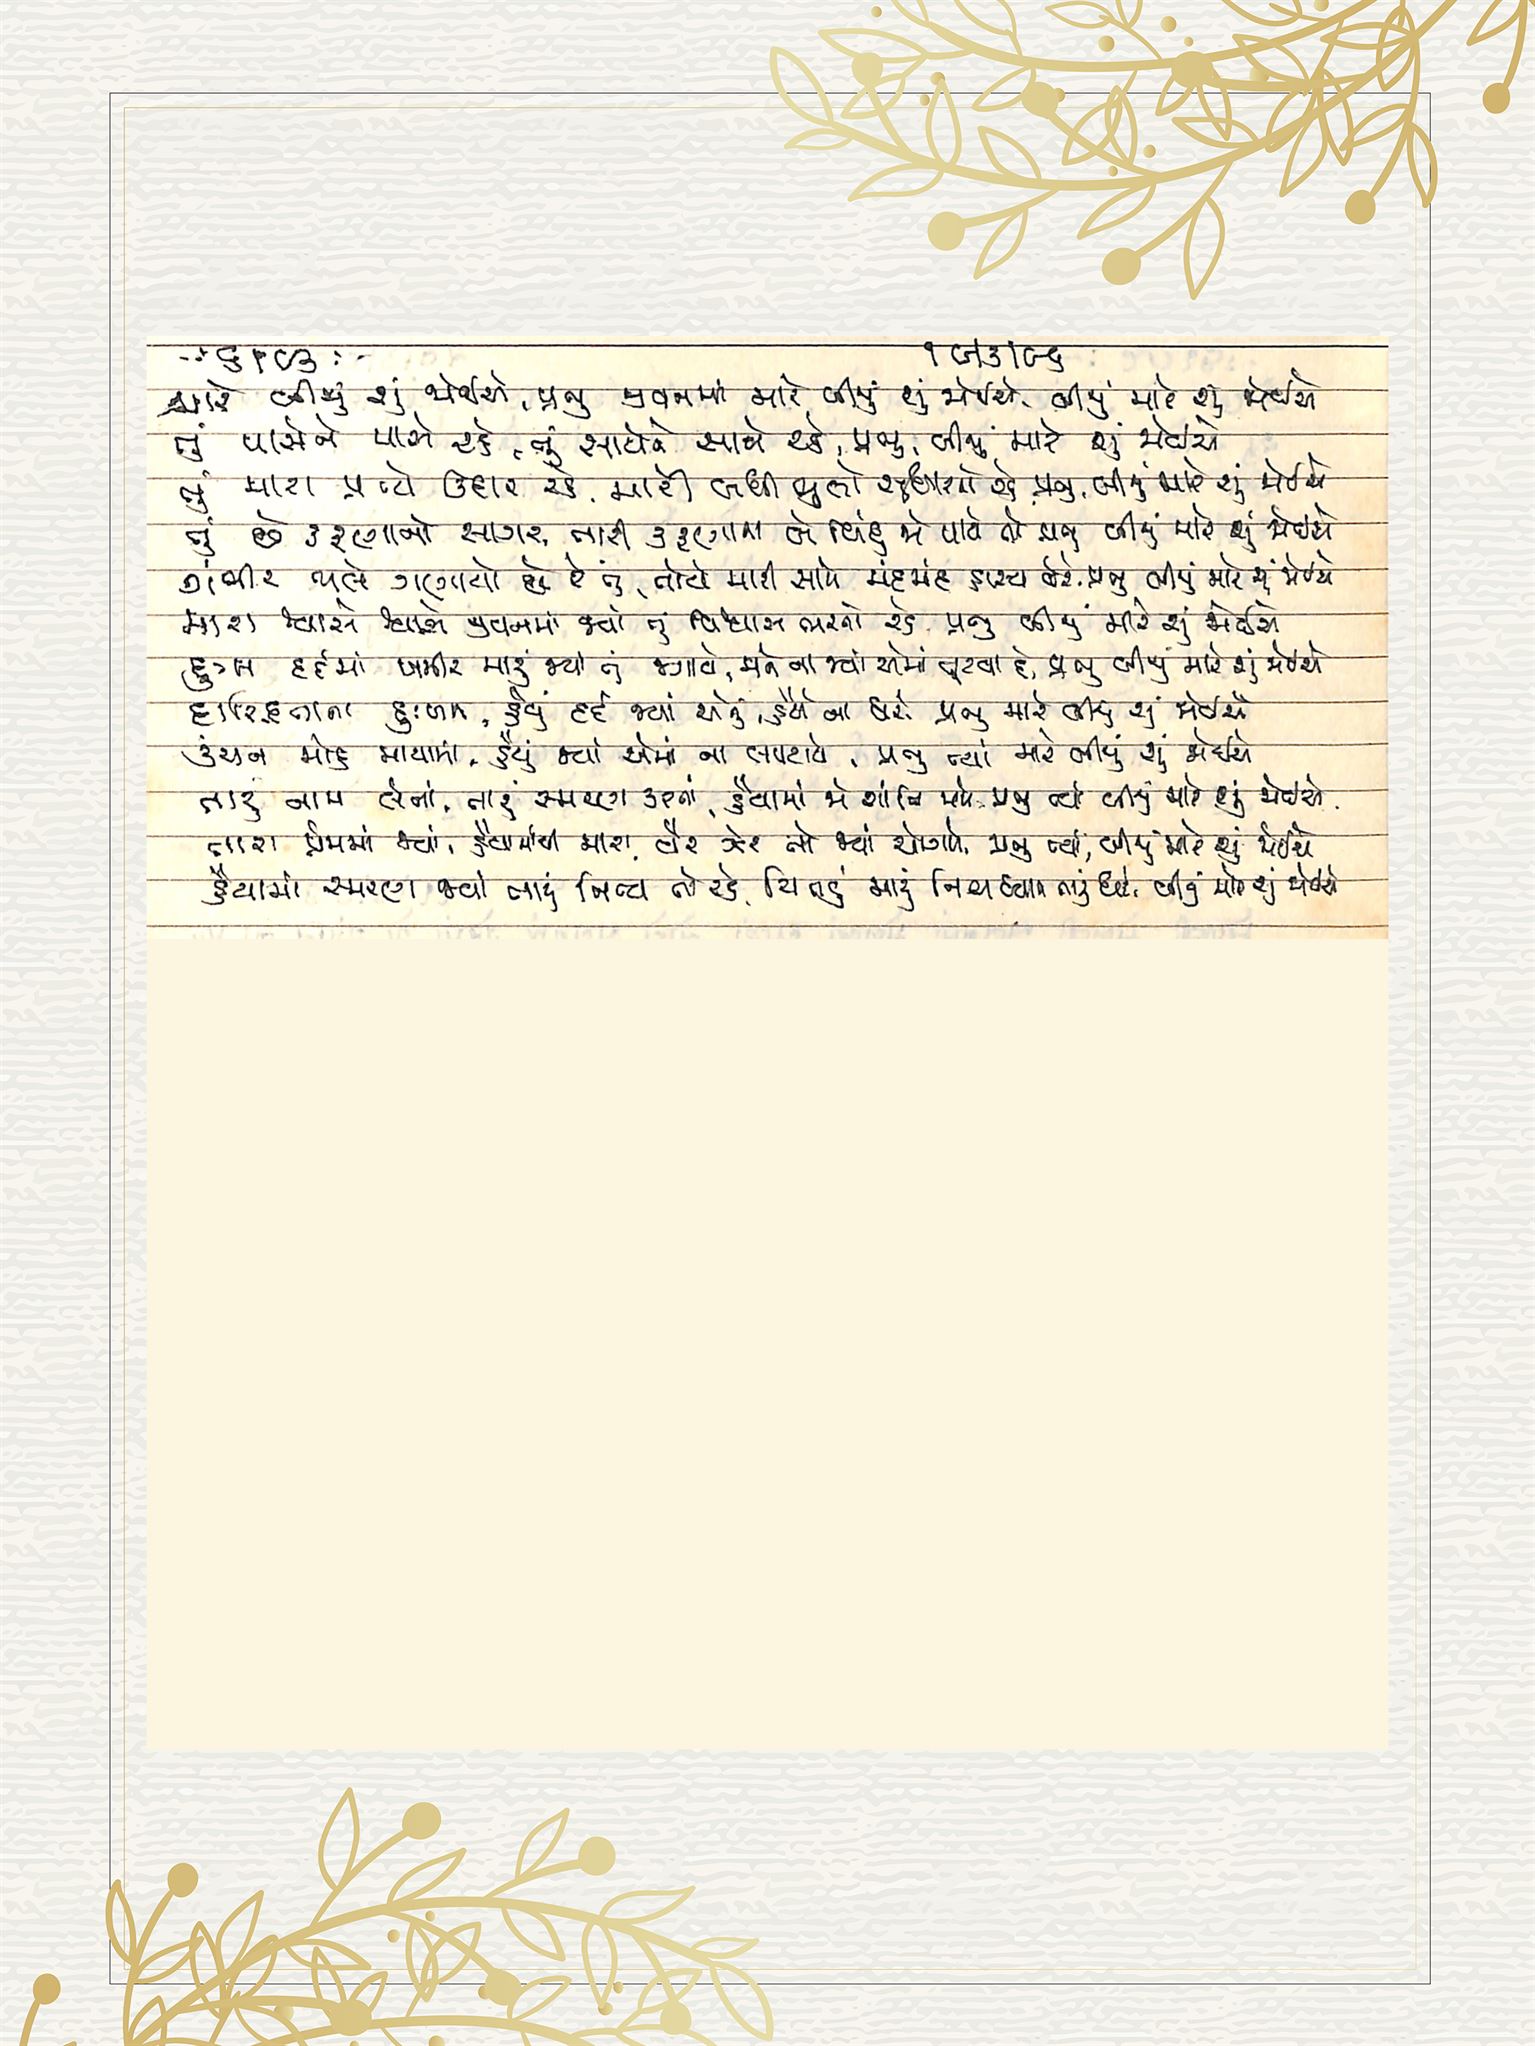 -ઃ ૬૧૯૩ ઃ-
મારે બીજું શું જોઈએ, પ્રભુ જીવનમાં મારે બીજું શું જોઈએ, બીજું મારે શું જોઈએ
તું પાસેને પાસે રહે, તું સાથેને સાથે રહે, પ્રભુ, બીજું મારે શું જોઈએ
તું મારા પ્રત્યે ઉદાર રહે, મારી બધી ભુલો રહે પ્રભુ, બીજું મારે શું જોઈએ
તું છે કરૂણાનો સાગર, તારી કરૂણાના બે બિંદુ જો પાવે તો પ્રભુ બીજું મારે શું જોઈએ
ગંભીર ભલે ગણાયો હોયે તું, તોયે મારી સામે મંદમંદ હાસ્ય વેરે પ્રભુ બીજું મારે શું જોઈએ
મારા શ્વાસે શ્વાસે જીવનમાં જ્યાં તું વિશ્વાસ ભરતો રહે પ્રભુ બીજું મારે શું જોઈએ
દુઃખ દર્દમાં ખમીર મારું જ્યાં તું જગાવે, મને ના જ્યાં એમાં તૂટવા દે, પ્રભુ બીજું મારે શું જોઈએ
દારિદ્રતાના દુઃખને, હૈયું દર્દ જ્યાં એનું, હૈયે ના ધરે પ્રભુ મારે બીજું શું જોઈએ
કંચન મોહ માયામાં, હૈયું જ્યાં એમાં ના લપટાવે, પ્રભુ ત્યાં મારે બીજું શું જોઈએ
તારું નામ લેતાં, તારું સ્મરણ કરતાં, હૈયામાં જો શાંતિ મળે પ્રભુ ત્યાં બીજું મારે શું જોઈએ.
તારા પ્રેમમાં જ્યાં, હૈયામાંથી મારા, વૈર ઝેર તો જ્યાં ઓગળે, પ્રભુ ત્યાં, બીજું મારે શું જોઈએ
હૈયામાં સ્મરણ જ્યાં તારું નિત્ય તો રહે, ચિત્તડું મારું નિત્ય ધ્યાન તારું ધરે, બીજું મારે શું જોઈએ